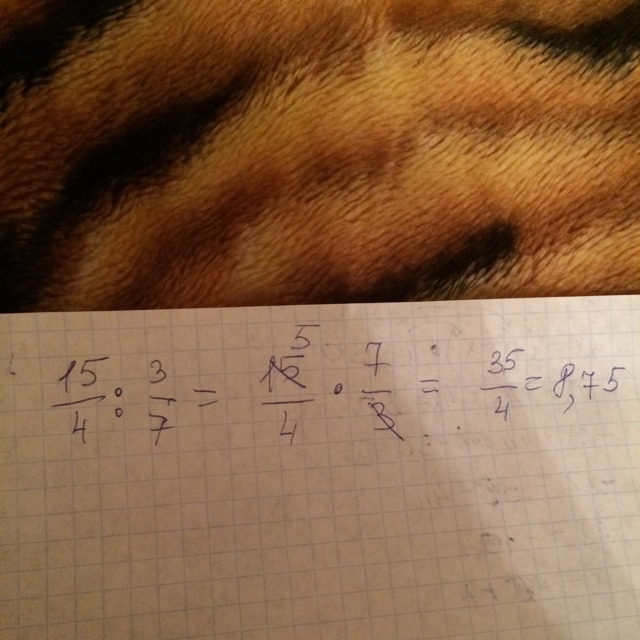 15/4 : 3/7 = 5 15/4 · 7/3 = 35/4 = 8,75